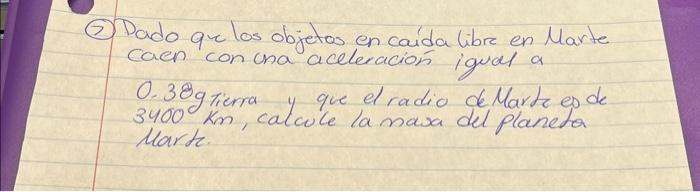 ② Dado que los objetos en caída libre en Marte
caen con una aceleración igual a
0.38g Tierra y que el radio de Marte es de
3400 Km, calcule la masa del planeta
Marte.